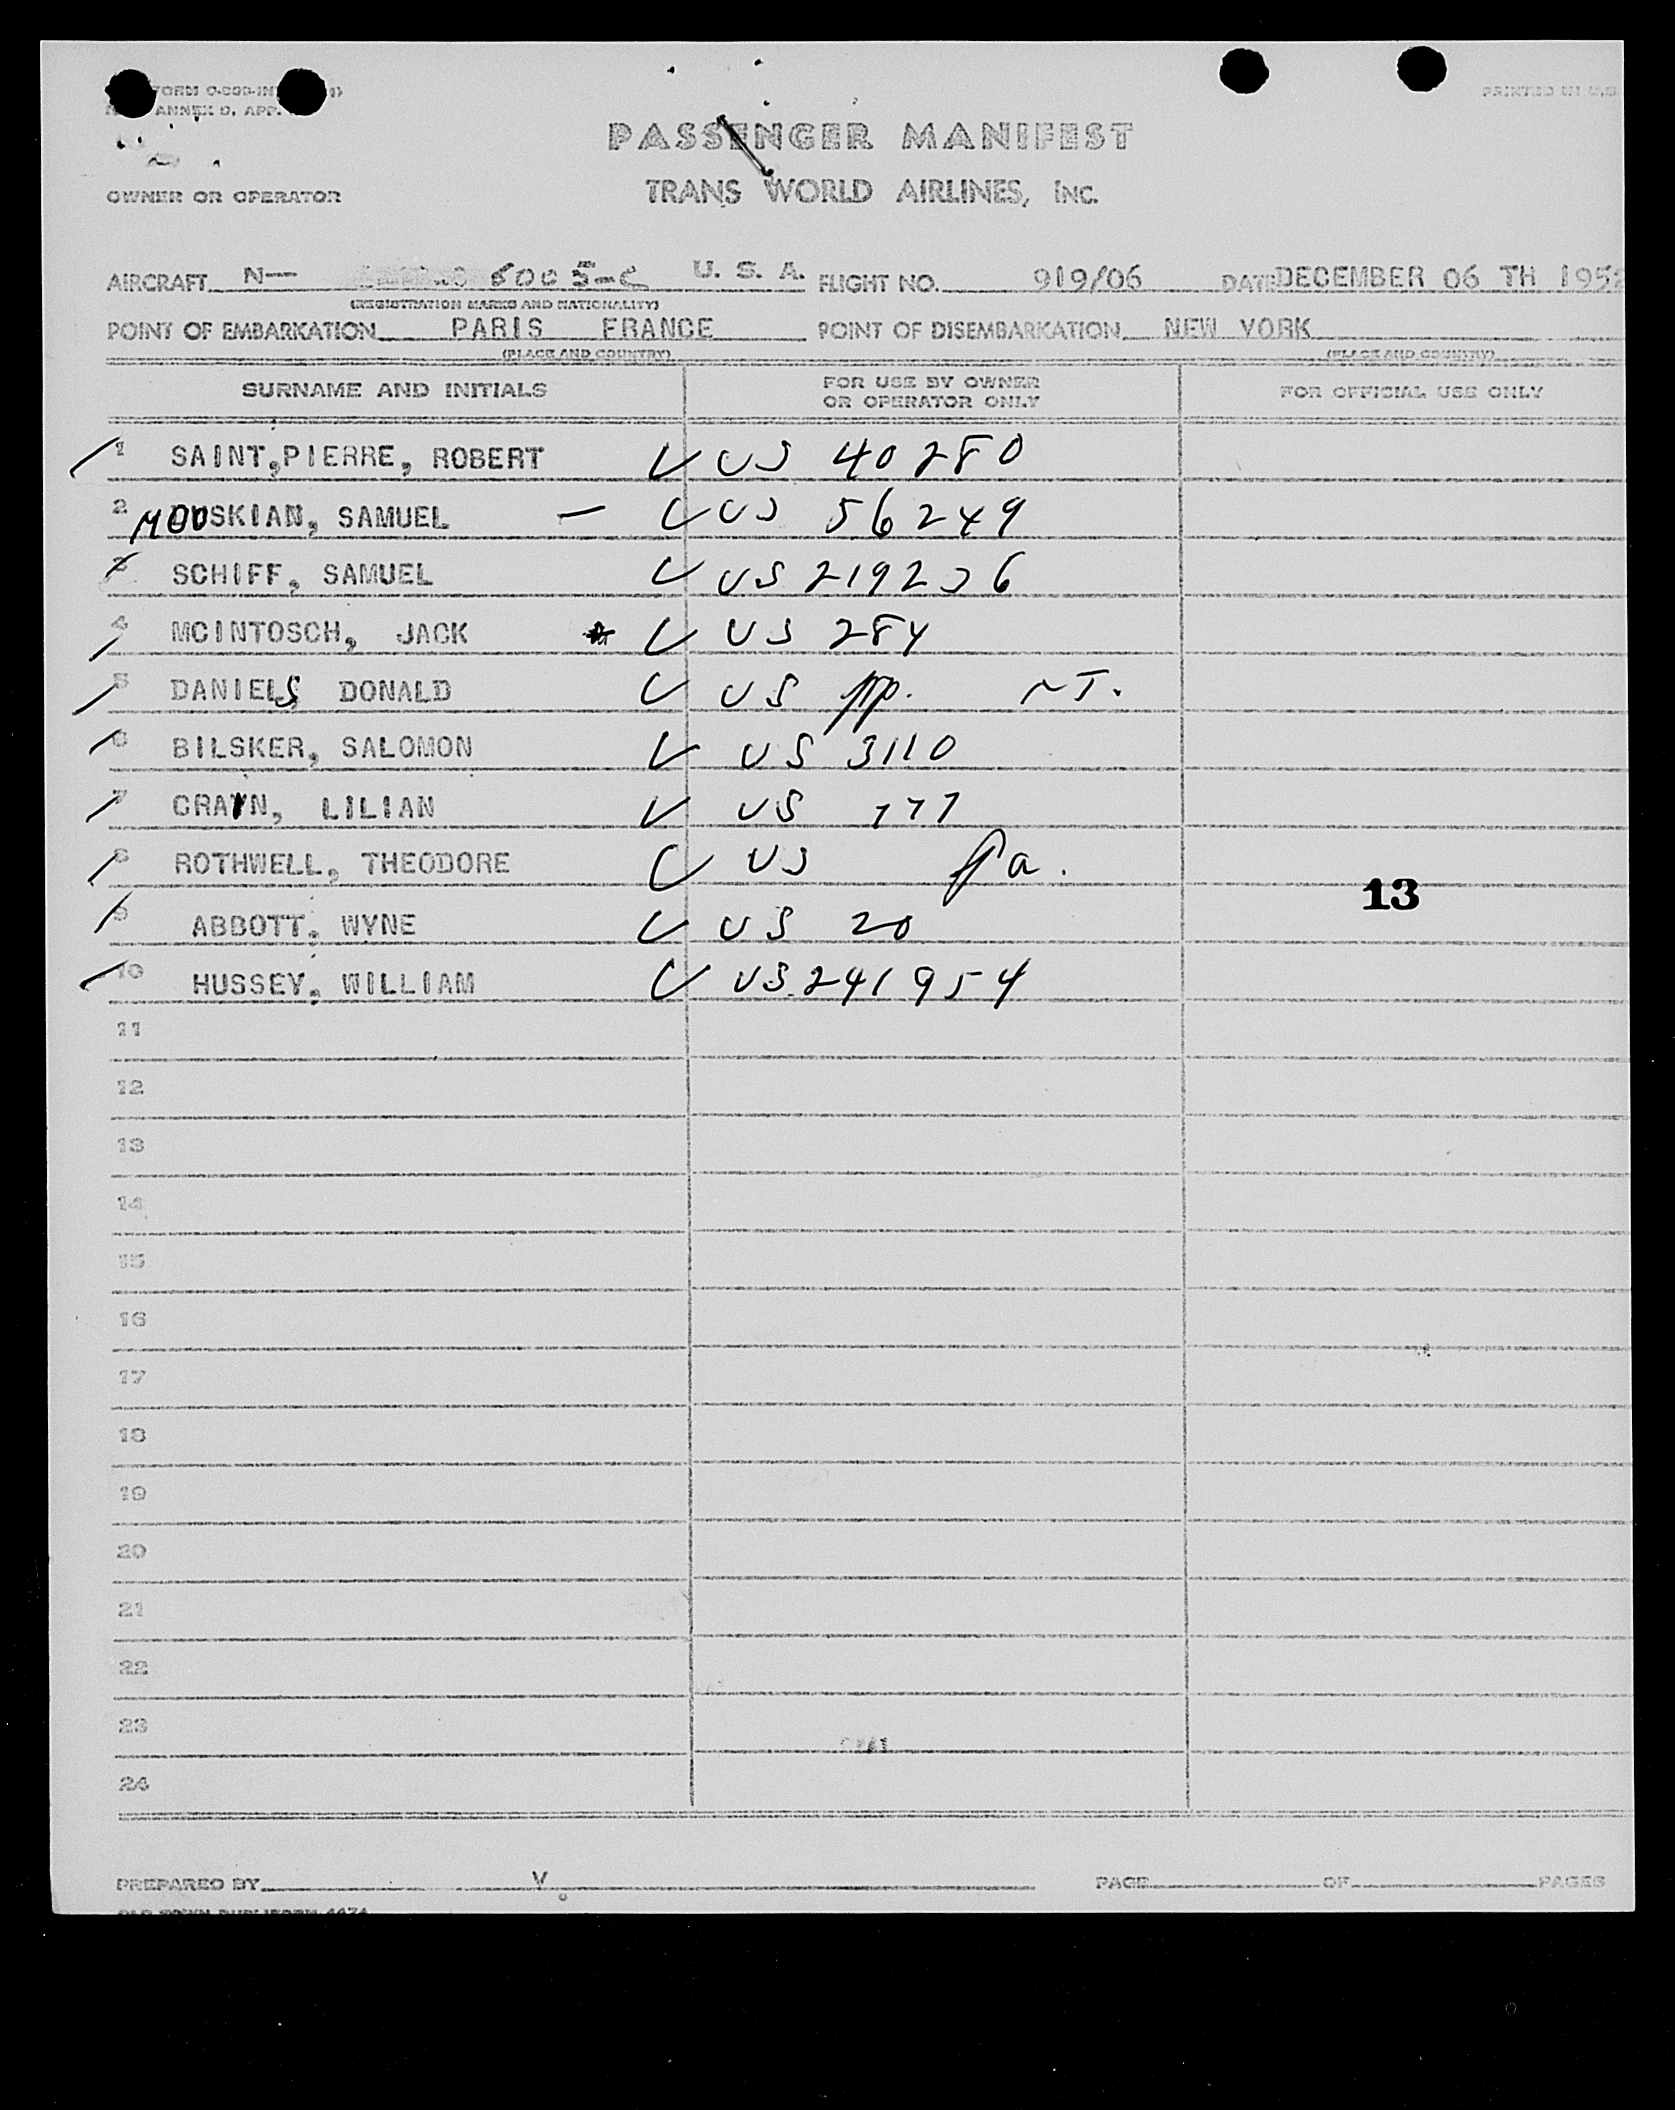 PRINTED IN U.S.
ANNEX D, APP.
PASSENGER MANIFEST
OWNER OR OPERATOR TRANS WORLD AIRLINES, INC.
AIRCRAFT N— 6005-C U. S. A. FLIGHT NO. 919/06 DATE DECEMBER 06 TH 1952
(REGISTRATION MARKS AND NATIONALITY)
POINT OF EMBARKATION PARIS FRANCE POINT OF DISEMBARKATION NEW YORK
(PLACE AND COUNTRY) (PLACE AND COUNTRY)
SURNAME AND INITIALS FOR USE BY OWNER OR OPERATOR ONLY FOR OFFICIAL USE ONLY
1 SAINT,PIERRE, ROBERT US 40280
2 MOUSKIAN, SAMUEL — US 56249
3 SCHIFF, SAMUEL US 219236
4 MCINTOSCH, JACK US 284
5 DANIELS DONALD US pp. NT.
6 BILSKER, SALOMON US 3110
7 CRAYN, LILIAN US 177
8 ROTHWELL, THEODORE US pa.
13
9 ABBOTT, WYNE US 20
10 HUSSEY, WILLIAM US 241954
11
12
13
14
15
16
17
18
19
20
21
22
23
24
PREPARED BY V PAGE OF PAGES